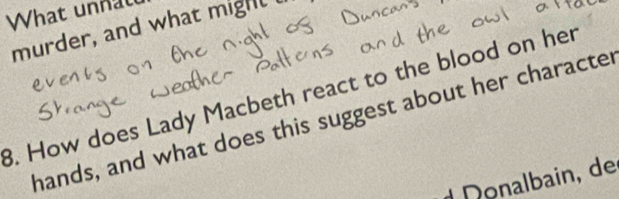 What
murder, and what might
events on the night of Duncans
Strange weather Patterns and the owl
8. How does Lady Macbeth react to the blood on her
hands, and what does this suggest about her character
Donalbain,